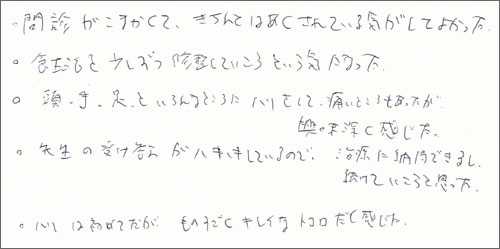 ・問診がこまかくて、きちんとはあくされている気がしてよかった
・食生活を少しずつ修整していこうという気になった
・頭・手・足、といろんなところにハリをして、痛いところもあったが、
興味深く感じた。
・先生の受け答えがハキハキしているので、治療に納得できるし、
続けていこうと思った。
・ハリは初めてだが、ものすごくキレイなトコロだと感じた。